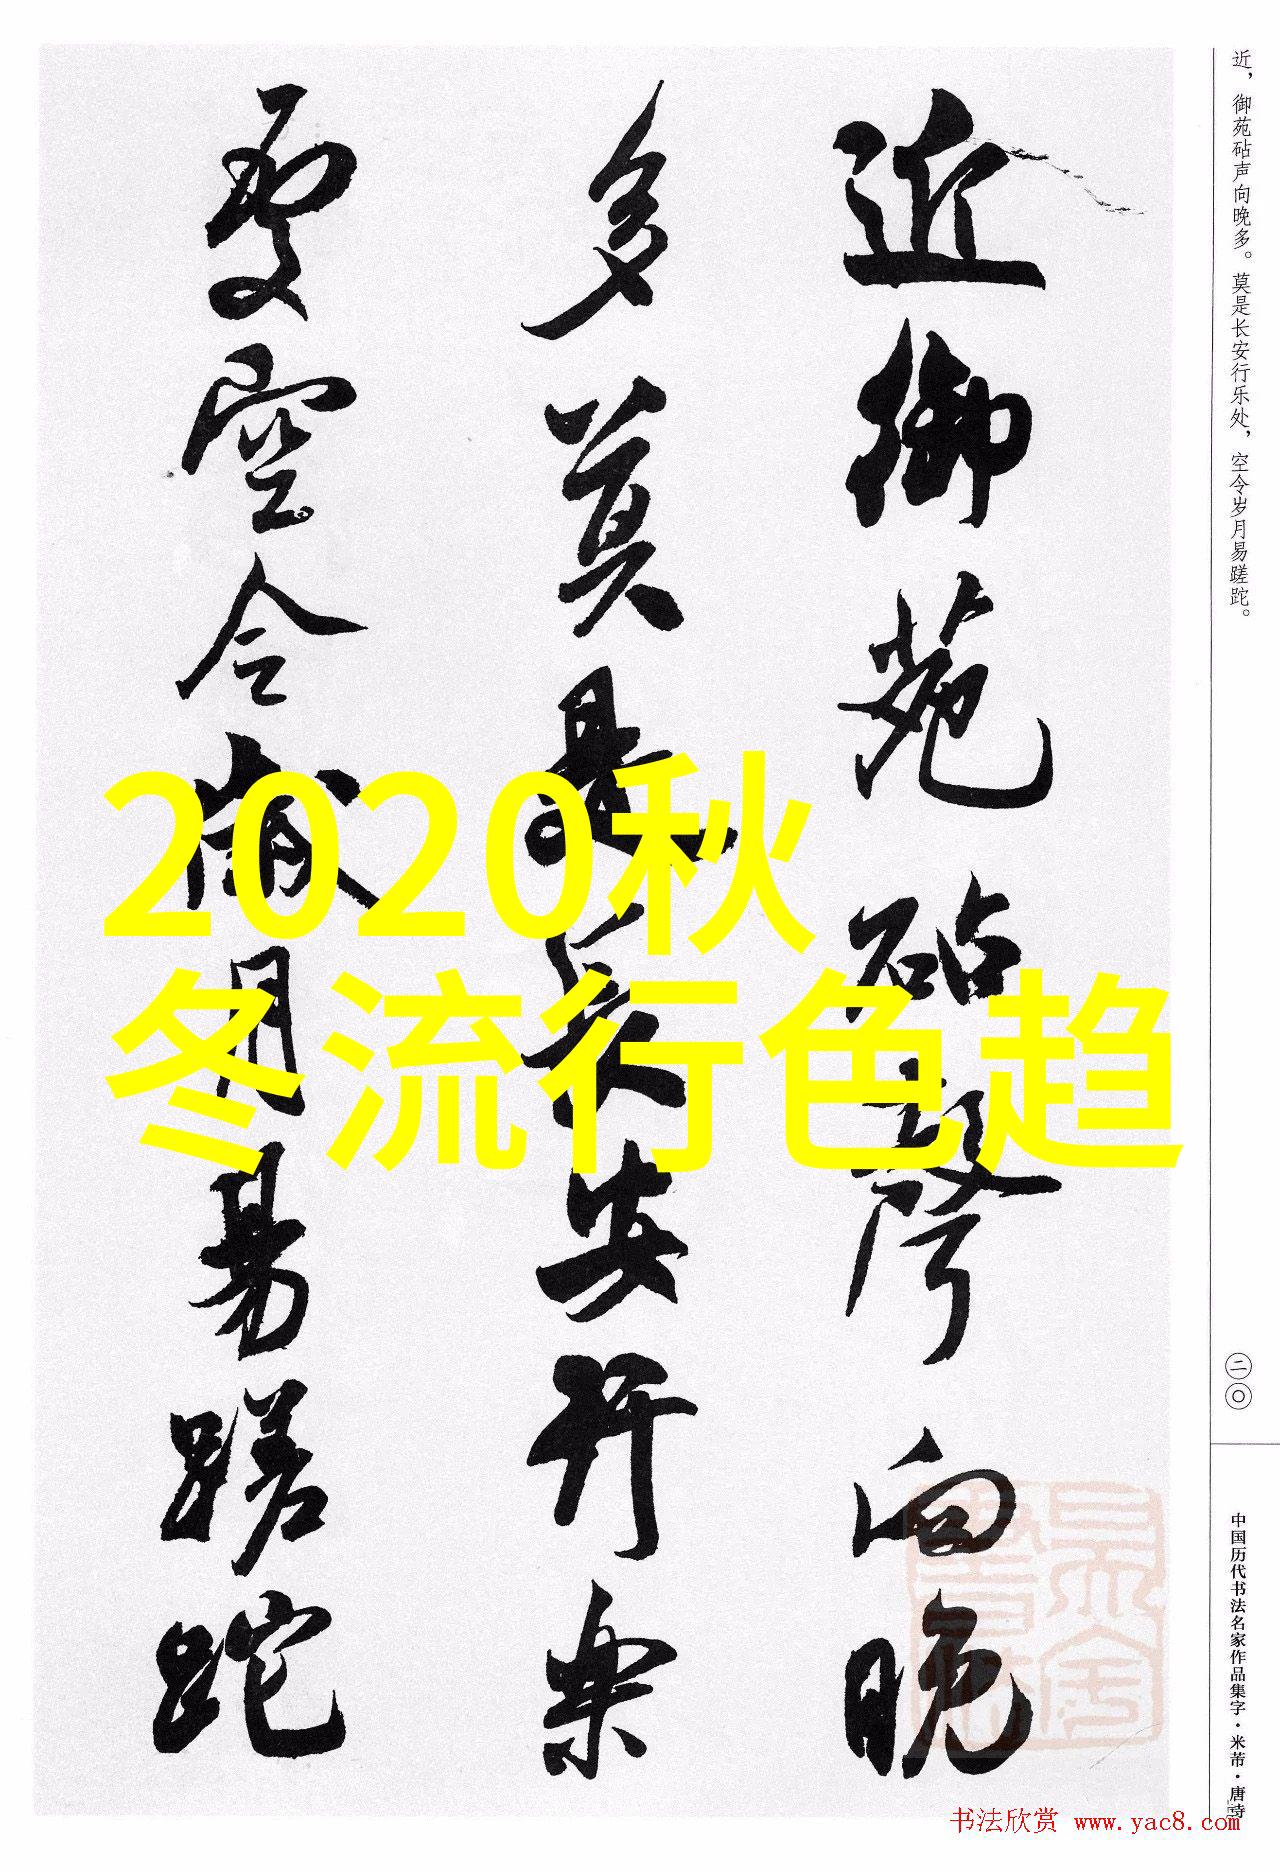 近，御苑砧声向晚多。莫是长安行乐处，空令岁月易蹉跎。
二〇
中国历代书法名家作品集字·米芾·唐诗
近御苑砧聲向晚
多莫是長安行樂
處空令歲月易蹉跎
2020秋
冬流行色趋
书法欣赏 www.yac8.com